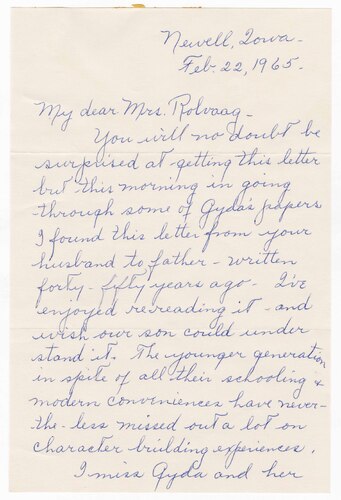 Newell, Iowa -
Feb. 22, 1965.
My dear Mrs. Rolvaag -
You will no doubt be
surprised at getting this letter
but this morning in going
through some of Gyda's papers
I found this letter from your
husband to father - written
forty - fifty years ago - I've
enjoyed re-reading it - and
wish our son could under
stand it. The younger generation
in spite of all their schooling &
modern conveniences have never-
the-less missed out a lot on
character building experiences.
I miss Gyda and her